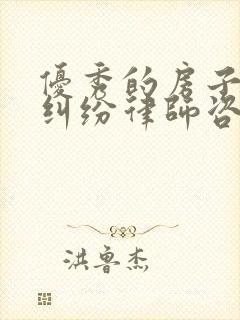 優秀的房子
糾紛律師咨
洪魯杰